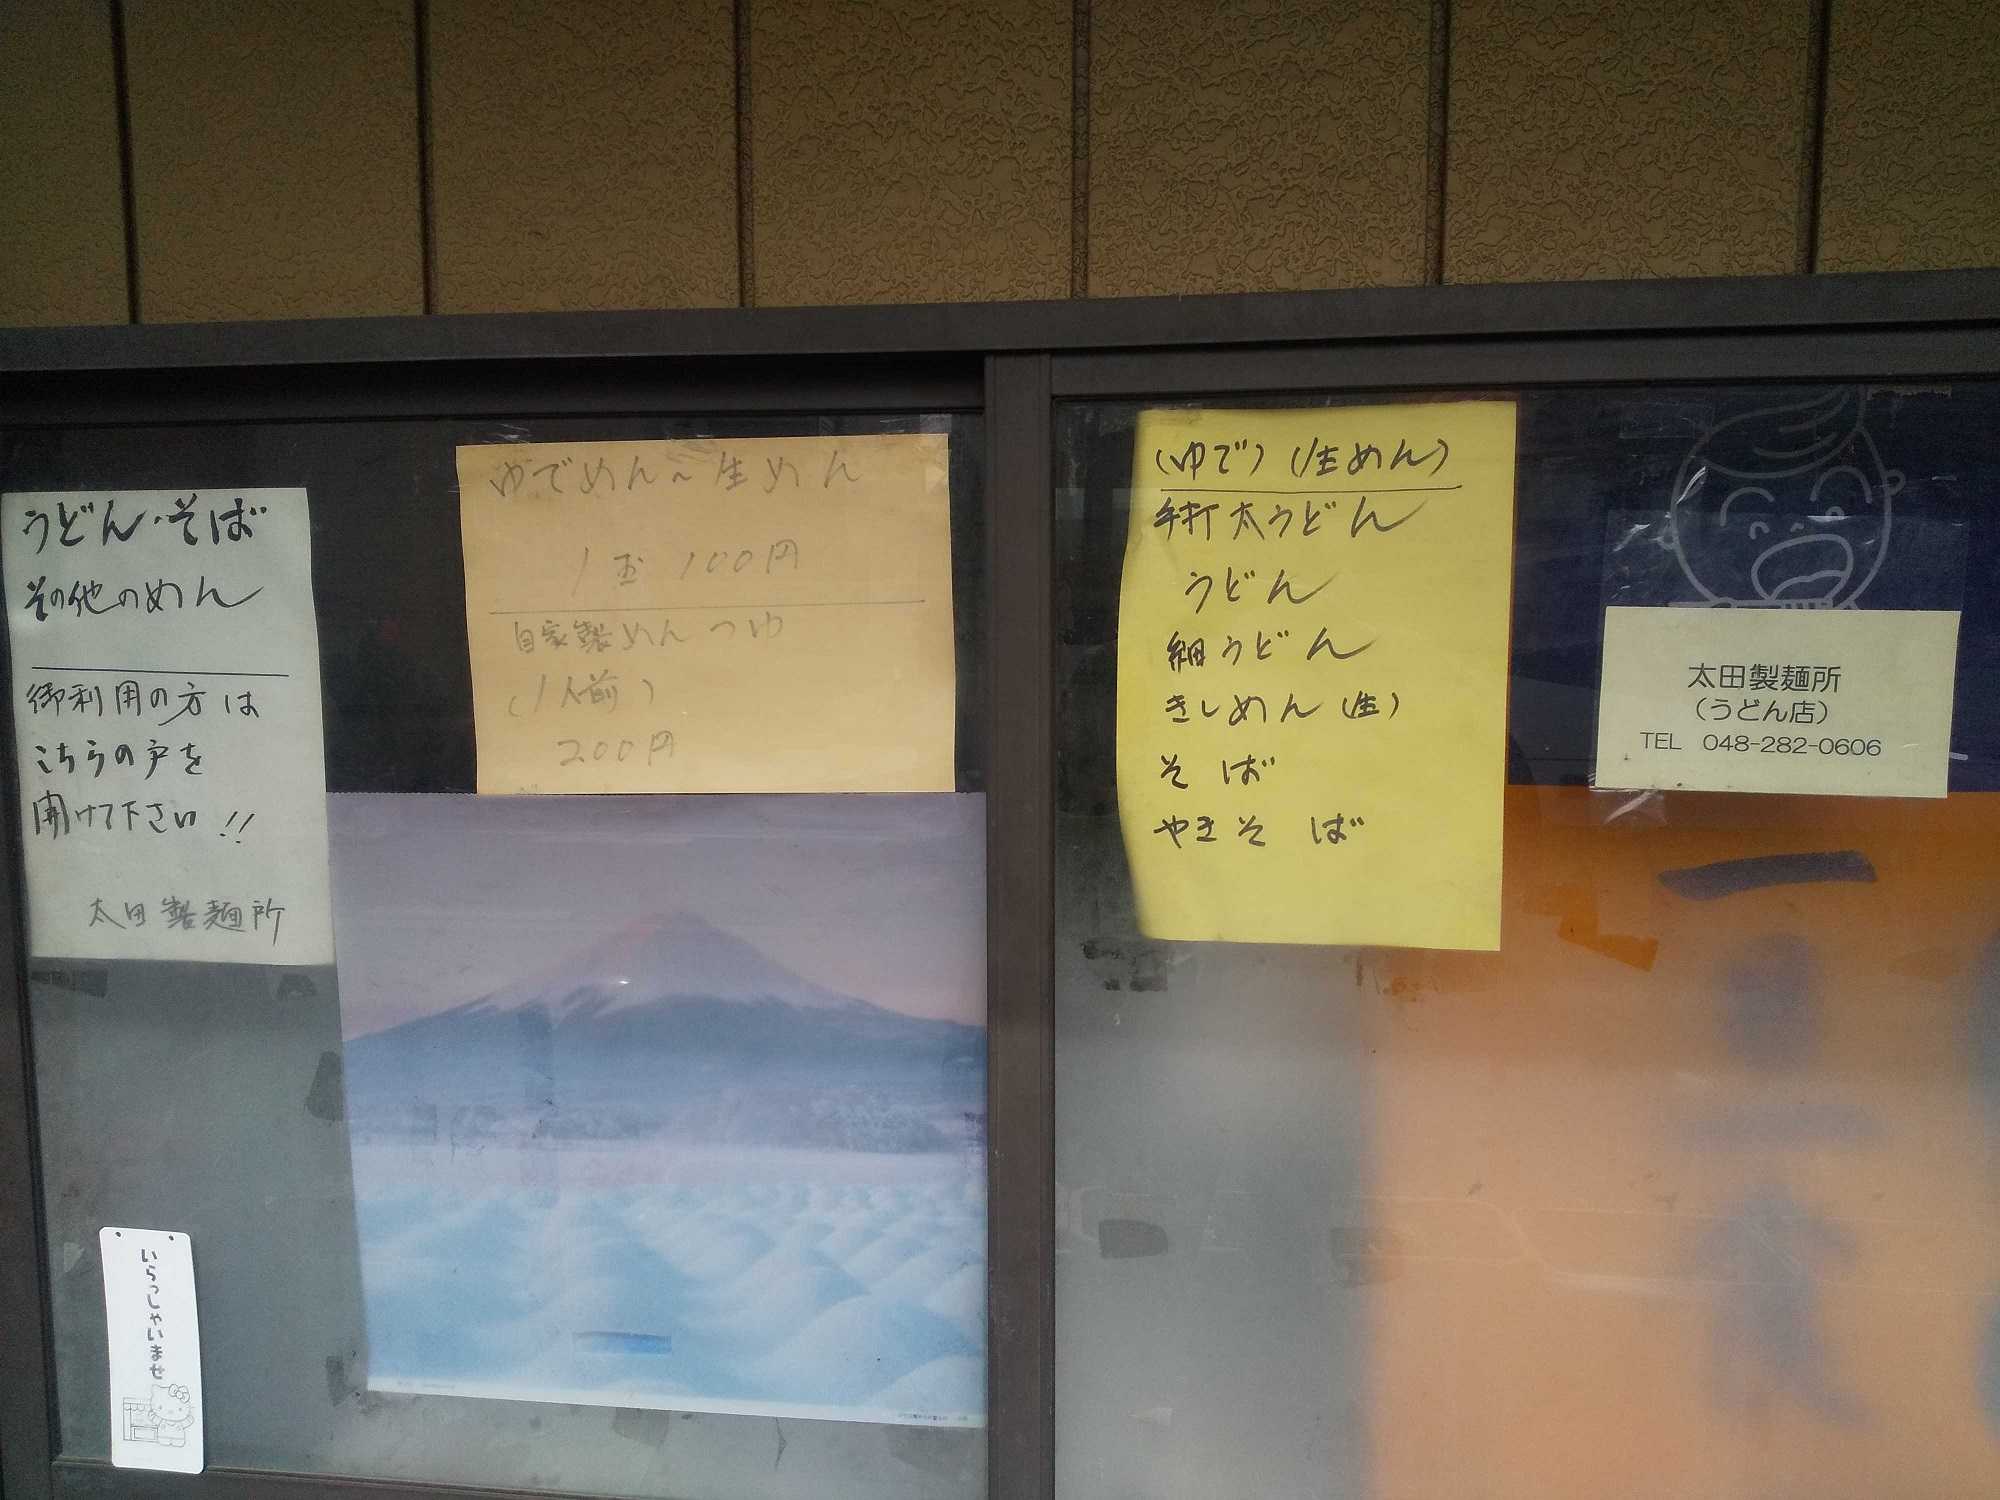 うどん・そば
その他のめん
御利用の方は
こちらの戸を
開けて下さい!!
太田製麺所
ゆでめん～生めん
1玉 100円
自家製めんつゆ
(1人前)
200円
(ゆで) (生めん)
手打太うどん
うどん
細うどん
きしめん(生)
そば
やきそば
太田製麺所
(うどん店)
TEL 048-282-0606
いらっしゃいませ